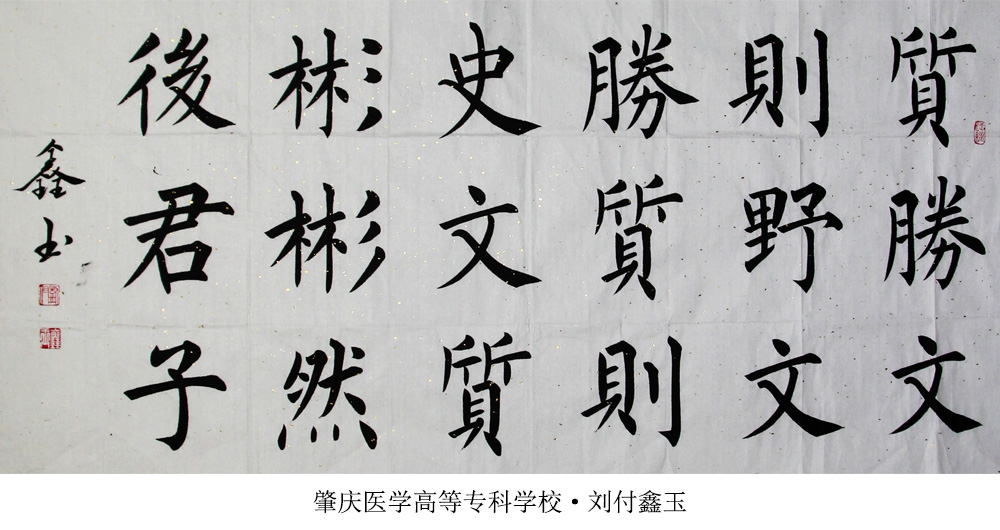 質勝文
則野文
勝質則
史文質
彬彬然
後君子
鑫玉
肇庆医学高等专科学校·刘付鑫玉